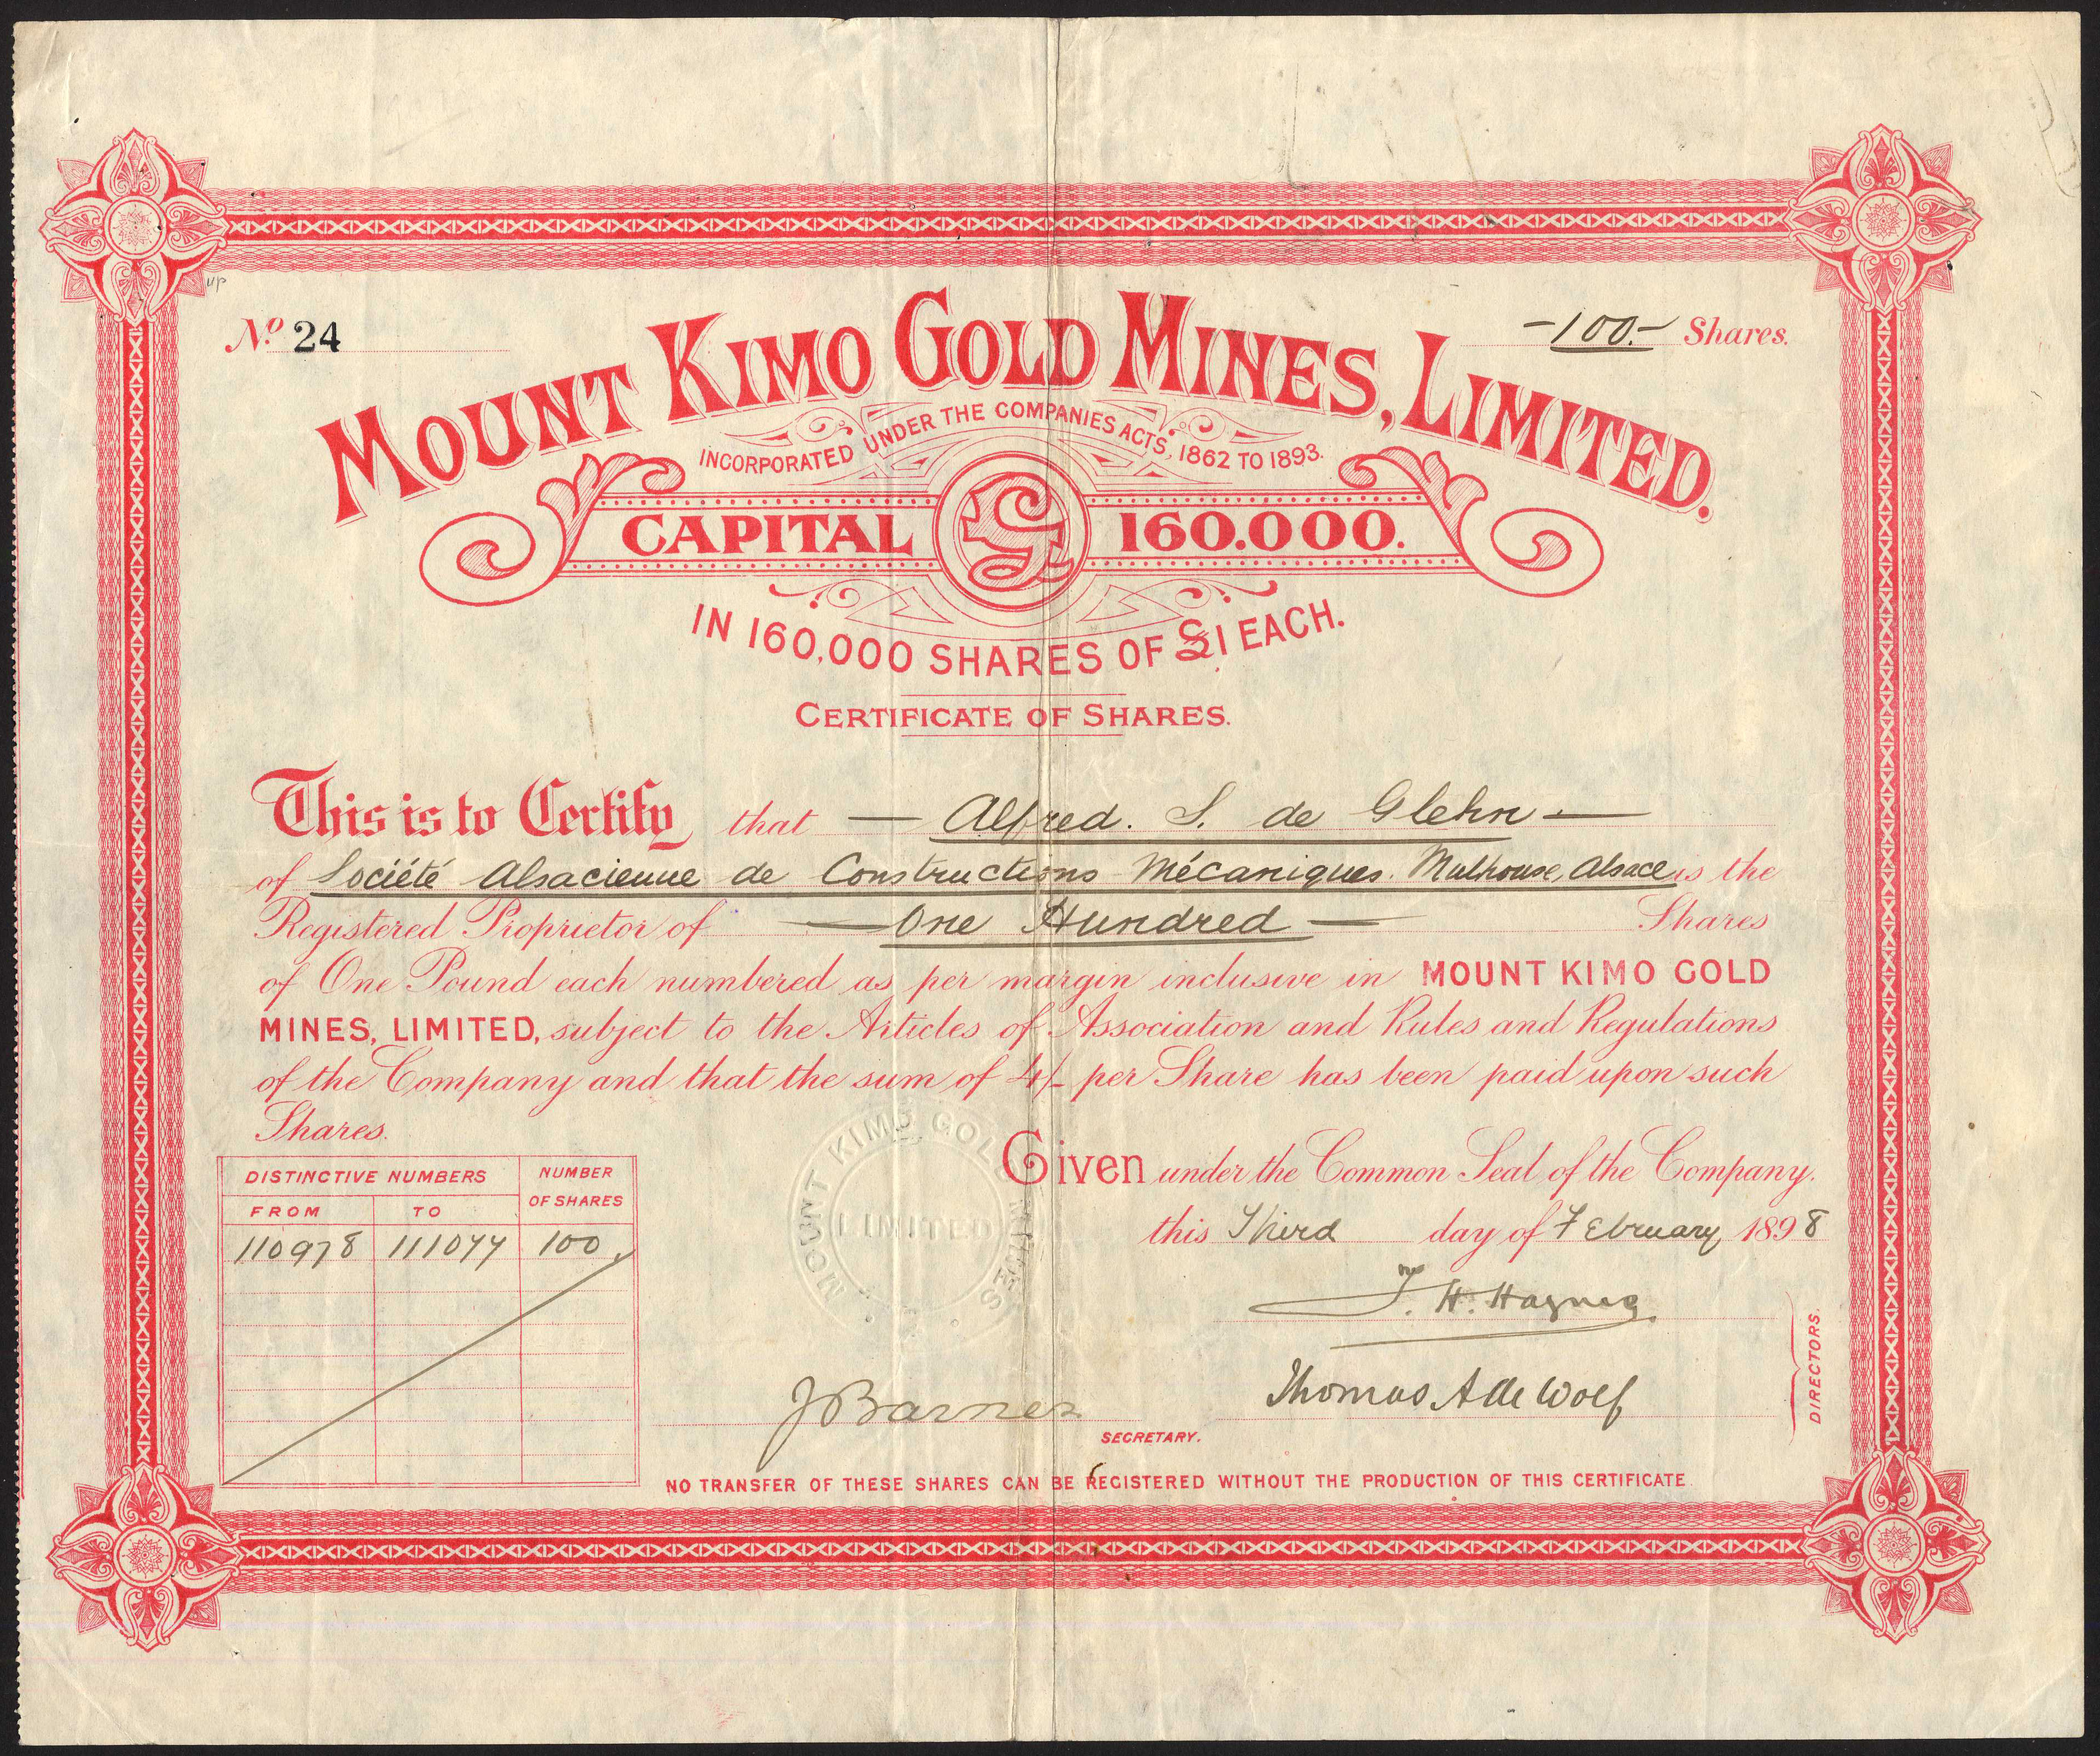 up
No. 24
-100.- Shares.
MOUNT KIMO GOLD MINES, LIMITED.
INCORPORATED UNDER THE COMPANIES ACTS, 1862 TO 1893.
CAPITAL £ 160.000.
IN 160,000 SHARES OF £1 EACH.
CERTIFICATE OF SHARES.
This is to Certify that — Alfred. S. de Glehn —
of Sociiété Alsacienne de Constructions Mécaniques. Mulhouse, Alsace is the
Registered Proprietor of — One Hundred — Shares
of One Pound each numbered as per margin inclusive in MOUNT KIMO GOLD
MINES, LIMITED, subject to the Articles of Association and Rules and Regulations
of the Company and that the sum of 4/- per Share has been paid upon such
Shares.
MOUNT KIMO GOLD MINES
LIMITED
Given under the Common Seal of the Company.
this Third day of February 1898
DISTINCTIVE NUMBERS NUMBER OF SHARES
FROM TO
110978 111077 100
T. H. Haynes
Thomas A de Wolf
DIRECTORS.
J Barnes
SECRETARY.
NO TRANSFER OF THESE SHARES CAN BE REGISTERED WITHOUT THE PRODUCTION OF THIS CERTIFICATE.